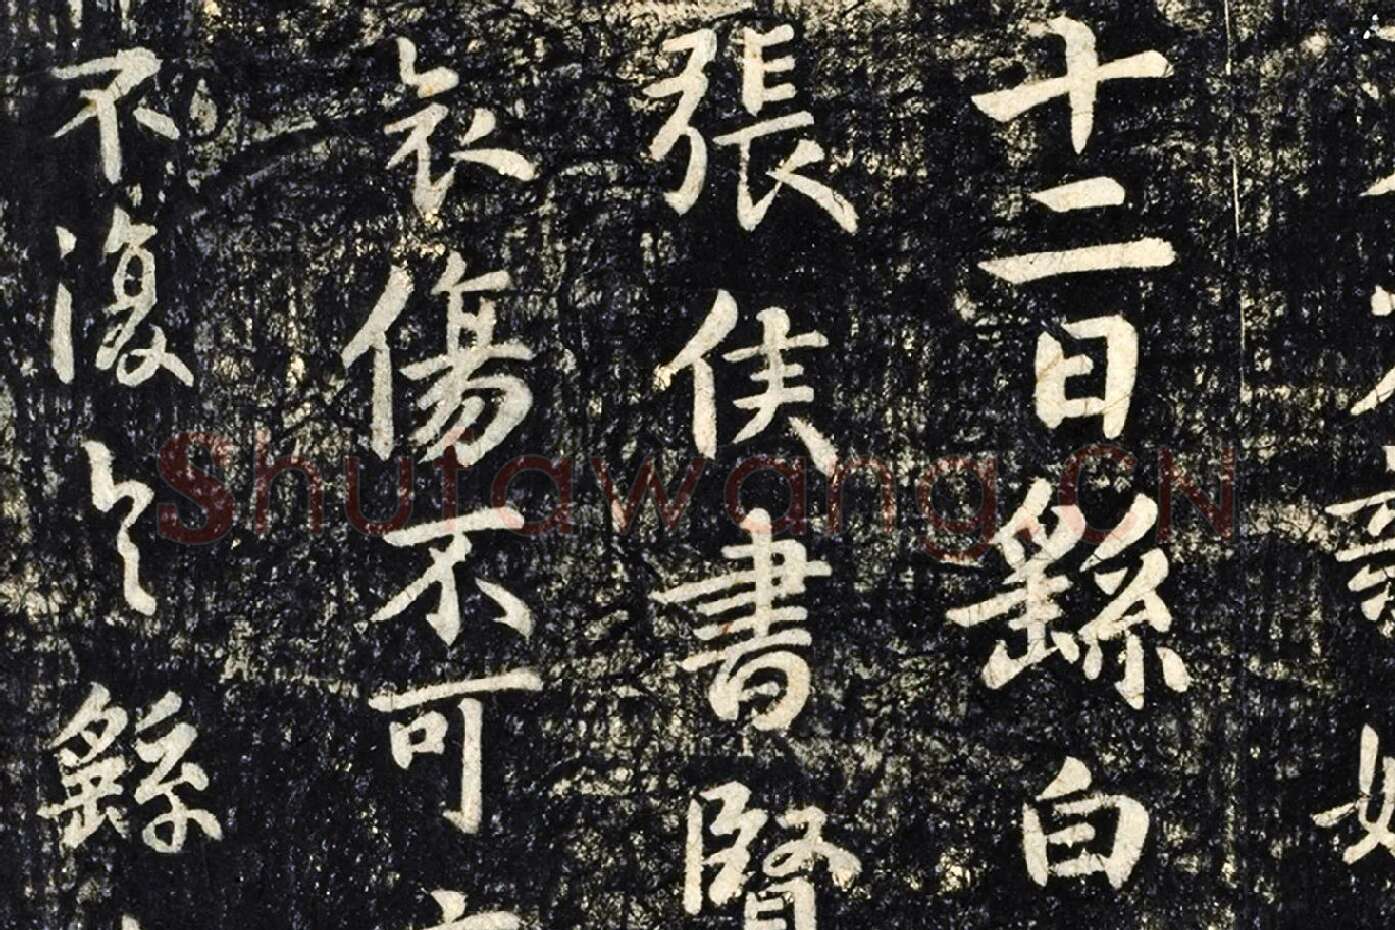 十二日繇白
張侯書賢
哀傷不可
不復 繇
Shufawang.CN